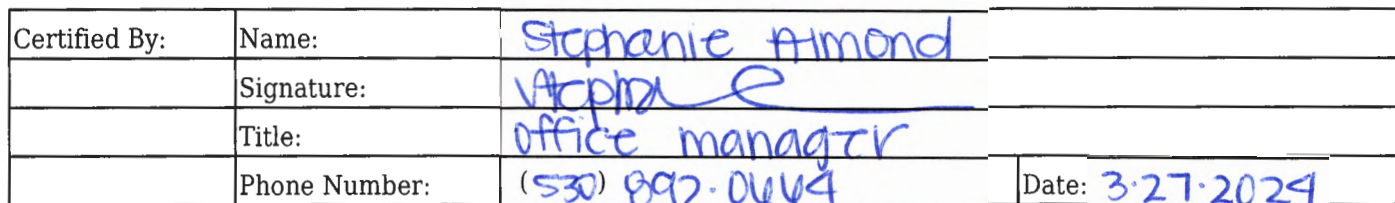 Certified By: Name: Stephanie Almond
Signature:
Title: office manager
Phone Number: (530) 892.0664 Date: 3.27.2024